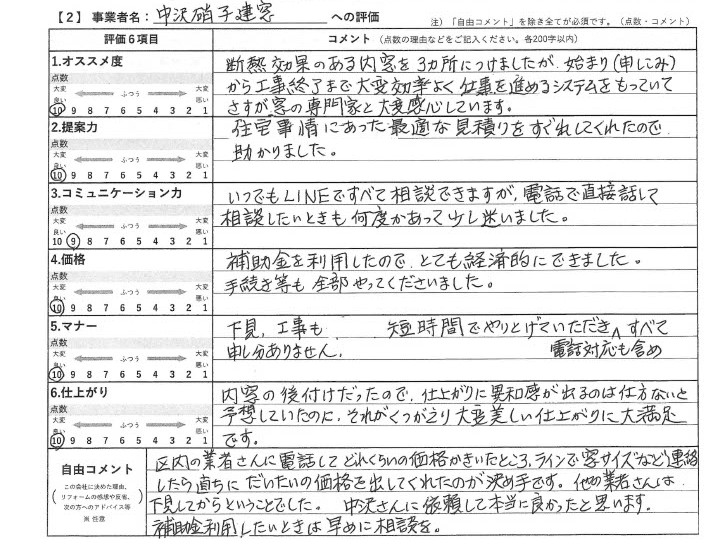 【2】事業者名：中沢硝子建窓 への評価
注）「自由コメント」を除き全てが必須です。（点数・コメント）
評価6項目
コメント（点数の理由などをご記入ください。各200字以内）
1.オススメ度
点数
大変良い ふつう 大変悪い
10 9 8 7 6 5 4 3 2 1
断熱効果のある内窓を3カ所につけましたが、始まり(申しこみ)
から工事終了まで大変効率よく仕事を進めるシステムをもっていて
さすが窓の専門家と大変感心しています。
2.提案力
点数
大変良い ふつう 大変悪い
10 9 8 7 6 5 4 3 2 1
住宅事情にあった最適な見積りをすぐ出してくれたので
助かりました。
3.コミュニケーション力
点数
大変良い ふつう 大変悪い
10 9 8 7 6 5 4 3 2 1
いつでもLINEですべて相談できますが、電話で直接話して
相談したいときも何度かあって少し迷いました。
4.価格
点数
大変良い ふつう 大変悪い
10 9 8 7 6 5 4 3 2 1
補助金を利用したので、とても経済的にできました。
手続き等も全部やってくださいました。
5.マナー
点数
大変良い ふつう 大変悪い
10 9 8 7 6 5 4 3 2 1
下見、工事も 短時間でやりとげていただき すべて
申し分ありません。 電話対応も含め
6.仕上がり
点数
大変良い ふつう 大変悪い
10 9 8 7 6 5 4 3 2 1
内窓の後付けだったので、仕上がりに異和感が出るのは仕方ないと
予想していたのに、それがくつがえり大変美しい仕上がりに大満足
です。
自由コメント
（この会社に決めた理由、
リフォームの感想や反省、
次の方へのアドバイス等）
※任意
区内の業者さんに電話してどれくらいの価格かきいたところ、ラインで窓サイズなど連絡
したら直ちにだいたいの価格を出してくれたのが決め手です。他の業者さんは
下見してからということでした。 中沢さんに依頼して本当に良かったと思います。
補助金利用したいときは早めに相談を。